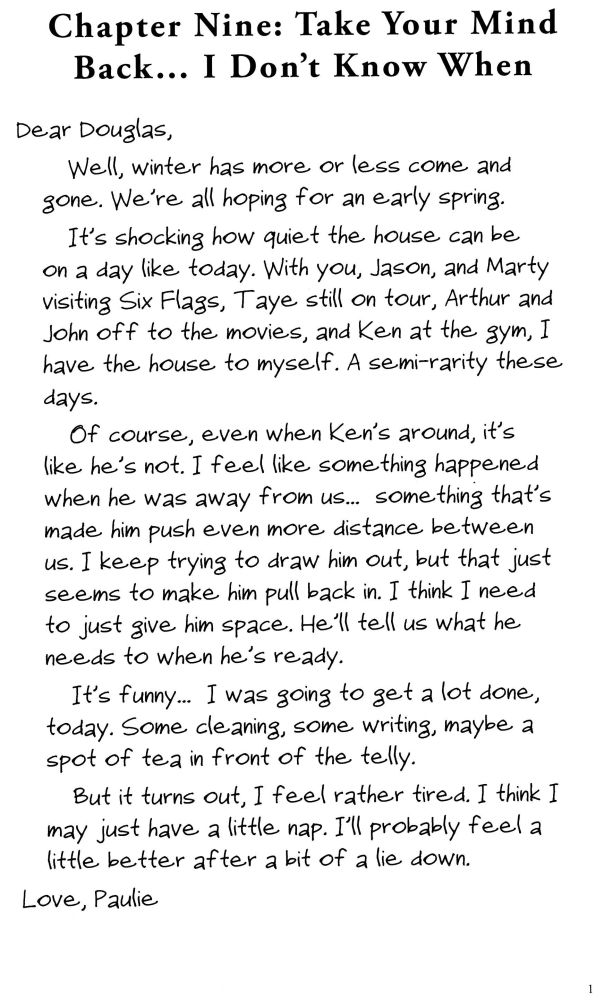 Chapter Nine: Take Your Mind
Back... I Don't Know When
Dear Douglas,
Well, winter has more or less come and
gone. We're all hoping for an early spring.
It's shocking how quiet the house can be
on a day like today. With you, Jason, and Marty
visiting Six Flags, Taye still on tour, Arthur and
John off to the movies, and Ken at the gym, I
have the house to myself. A semi-rarity these
days.
Of course, even when Ken's around, it's
like he's not. I feel like something happened
when he was away from us... something that's
made him push even more distance between
us. I keep trying to draw him out, but that just
seems to make him pull back in. I think I need
to just give him space. He'll tell us what he
needs to when he's ready.
It's funny... I was going to get a lot done,
today. Some cleaning, some writing, maybe a
spot of tea in front of the telly.
But it turns out, I feel rather tired. I think I
may just have a little nap. I'll probably feel a
little better after a bit of a lie down.
Love, Paulie
1